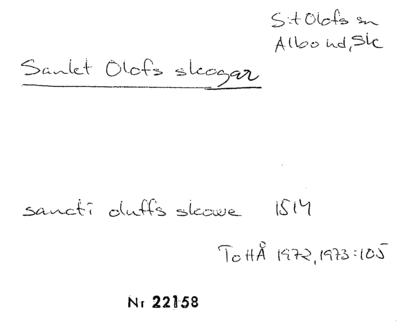 S:t Olofs sn
Albo hd, Sk
Sankt Olofs skogar
sancti oluffs skowe 1514
ToHÅ 1972, 1973:105
Nr 22158